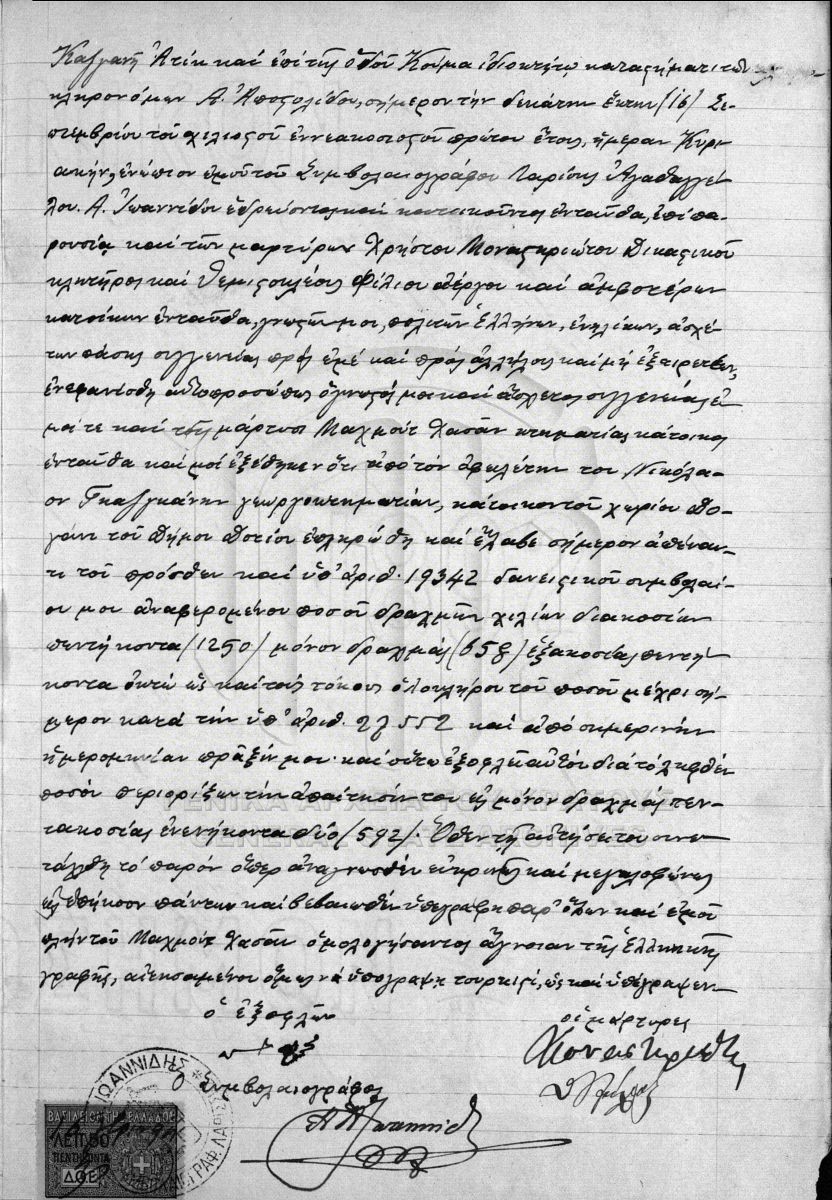 Καζγανή Ἀτίκ καὶ ἐπὶ τῆς ὁδοῦ Κούμα ἰδιοκτήτῳ καταστήματι τῶν
κληρονόμων Α. Ἀποστολίδου, σήμερον τὴν δεκάτην ἕκτην /16/ Σε-
πτεμβρίου τοῦ χιλιοστοῦ ἐννεακοσιοστοῦ πρώτου ἔτους, ἡμέραν Κυρι-
ακήν, ἐνώπιον ἐμοῦ τοῦ Συμβολαιογράφου Λαρίσης Ἀγαθαγγέ-
λου Α. Ἰωαννίδου ἑδρεύοντος καὶ κατοικοῦντος ἐνταῦθα, ἐπὶ πα-
ρουσίᾳ καὶ τῶν μαρτύρων Χρήστου Μοναστηριώτου δικαστικοῦ
κλητῆρος καὶ Θεμιστοκλέους Φίλιου ἀέργου καὶ ἀμφοτέρων
κατοίκων ἐνταῦθα, γνωστῶν μοι, πολιτῶν Ἑλλήνων, ἐνηλίκων, ἀσχέ-
των πάσης συγγενείας πρὸς ἐμὲ καὶ πρὸς ἀλλήλους καὶ μὴ ἐξαιρετέων,
ἐνεφανίσθη αὐτοπροσώπως ὁ γνωστός μοι καὶ ἄσχετος συγγενείας ἐ-
μοί τε καὶ τοῖς μάρτυσι Μαχμούτ Χασὰν κτηματίας κάτοικος
ἐνταῦθα καὶ μοὶ ἐξέθηκεν ὅτι ἀπὸ τὸν ὀφειλέτην του Νικόλα-
ον Γκαζγκάνην γεωργοκτηματίαν, κάτοικον τοῦ χωρίου
τοῦ δήμου ἐπληρώθη καὶ ἔλαβε σήμερον ἀπέναν-
τι τοῦ πρόσθεν καὶ ὑπ' ἀριθ. 19342 δανειστικοῦ συμβολαί-
ου μου ἀναφερομένου ποσοῦ δραχμῶν χιλίων διακοσίων
πεντήκοντα /1250/ μόνον δραχμὰς (658) ἑξακοσίας πεντή-
κοντα ὀκτὼ ὡς καὶ τοὺς τόκους ὁλοκλήρου τοῦ ποσοῦ μέχρι σή-
μερον κατὰ τὴν ὑπ' ἀριθ. 27552 καὶ ἀπὸ σημερινὴν
ἡμερομηνίαν πρᾶξίν μου· καὶ οὕτω ἐξοφλεῖ αὐτὸν διὰ τὸ ληφθὲν
ποσὸν περιορίζων τὴν ἀπαίτησίν του εἰς μόνον δραχμὰς πεν-
τακοσίας ἐνενήκοντα δύο /592/. Ὅθεν τῇ αἰτήσει του συνε-
τάχθη τὸ παρὸν ὅπερ ἀναγνωσθὲν εὐκρινῶς καὶ μεγαλοφώνως
εἰς ἐπήκοον πάντων καὶ βεβαιωθὲν ὑπεγράφη παρ' ὅλων καὶ ἐμοῦ
πλὴν τοῦ Μαχμοὺτ Χασὰν ὁμολογήσαντος ἄγνοιαν τῆς Ἑλληνικῆς
γραφῆς, αἰτησαμένου ὅμως νὰ ὑπογράψῃ τουρκιστί, ὡς καὶ ὑπέγραψεν.
ὁ ἐξοφλῶν
οἱ μάρτυρες
Μοναστηριώτης
Ὁ Συμβολαιογράφος
Α Α Ἰωαννίδης
ΙΩΑΝΝΙΔΗΣ
ΒΑΣΙΛΕΙΟΝ ΤΗΣ ΕΛΛΑΔΟΣ
ΛΕΠ. 50
ΠΕΝΤΗΚΟΝΤΑ